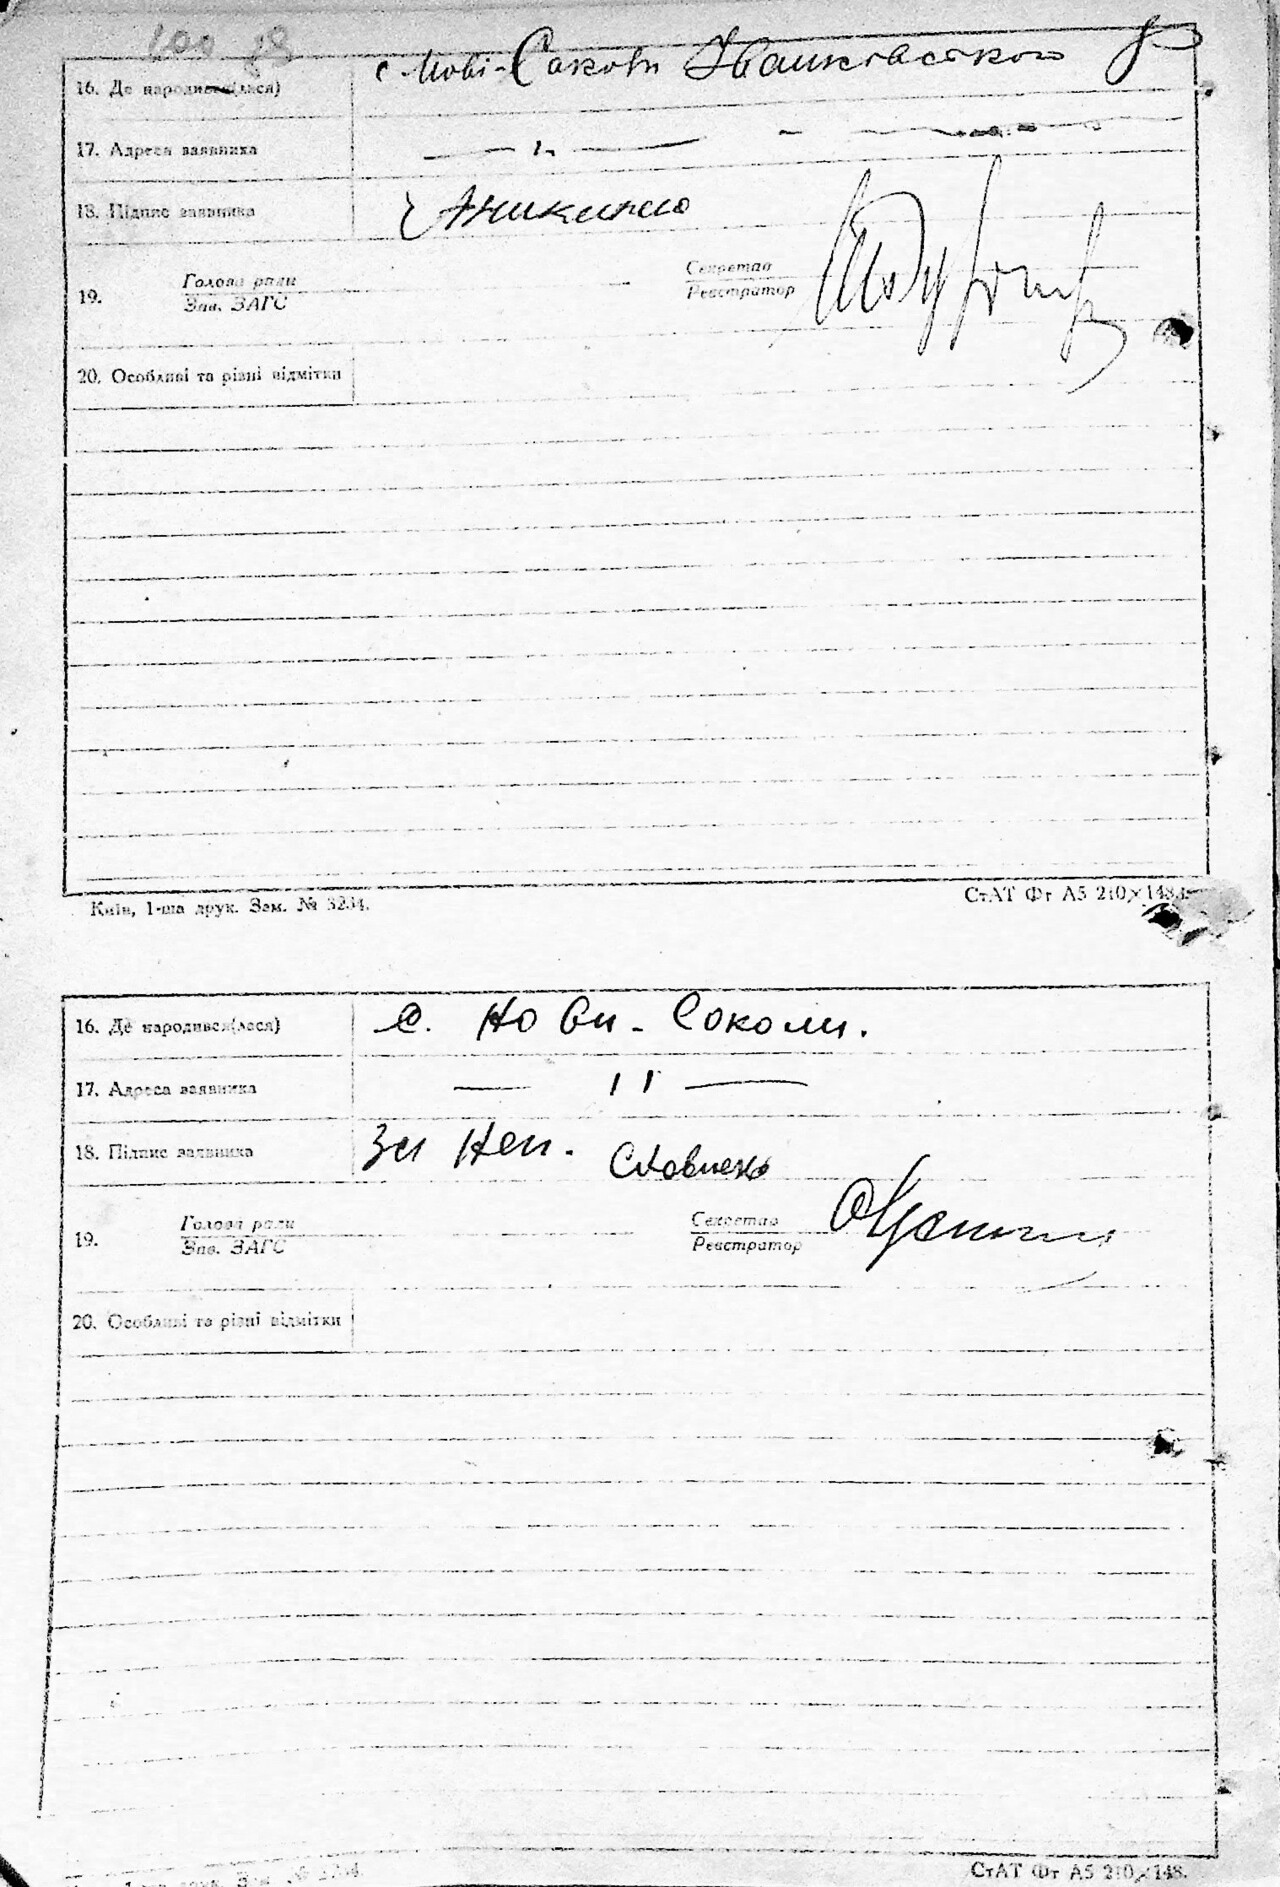 100 зв
с. Нові-Соколи Іванковського р
16. Де народився(лася)
17. Адреса заявника — " —
18. Підпис заявника
19. Голова ради
Зав. ЗАГС
Секретар
Реєстратор
20. Особливі та різні відмітки
Київ, 1-ша друк. Зам. № 3234.
СтАТ Фт А5 210×148.
16. Де народився(лася) с. Нови-Соколи.
17. Адреса заявника — " —
18. Підпис заявника За неп.
19. Голова ради
Зав. ЗАГС
Секретар
Реєстратор
20. Особливі та різні відмітки
СтАТ Фт А5 210×148.